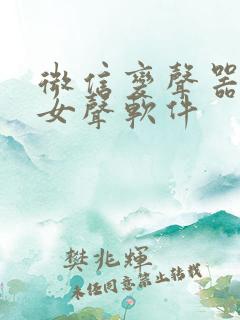 微信变聲器
女聲軟件
樊兆輝
未经同意禁止转载